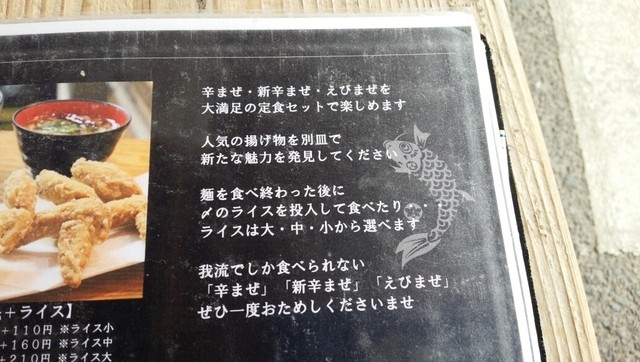 辛まぜ・新辛まぜ・えびまぜを
大満足の定食セットで楽しめます
人気の揚げ物を別皿で
新たな魅力を発見してください
麺を食べ終わった後に
〆のライスを投入して食べたり・・・
ライスは大・中・小から選べます
我流でしか食べられない
「辛まぜ」「新辛まぜ」「えびまぜ」
ぜひ一度おためしくださいませ
＋ライス】
＋110円 ※ライス小
＋160円 ※ライス中
＋210円 ※ライス大